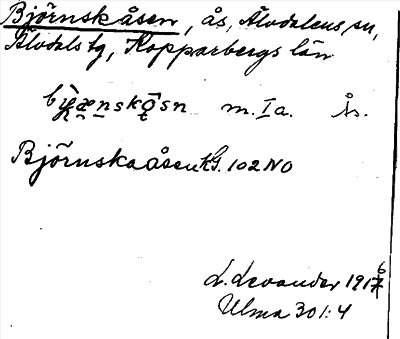 Björnskåsen, ås, Älvdalens sn,
Älvdals tg, Kopparbergs län
m. Ia. Ås.
Björnskaåsen kG. 102 NO
L. Levander 1916
Ulma 301:4